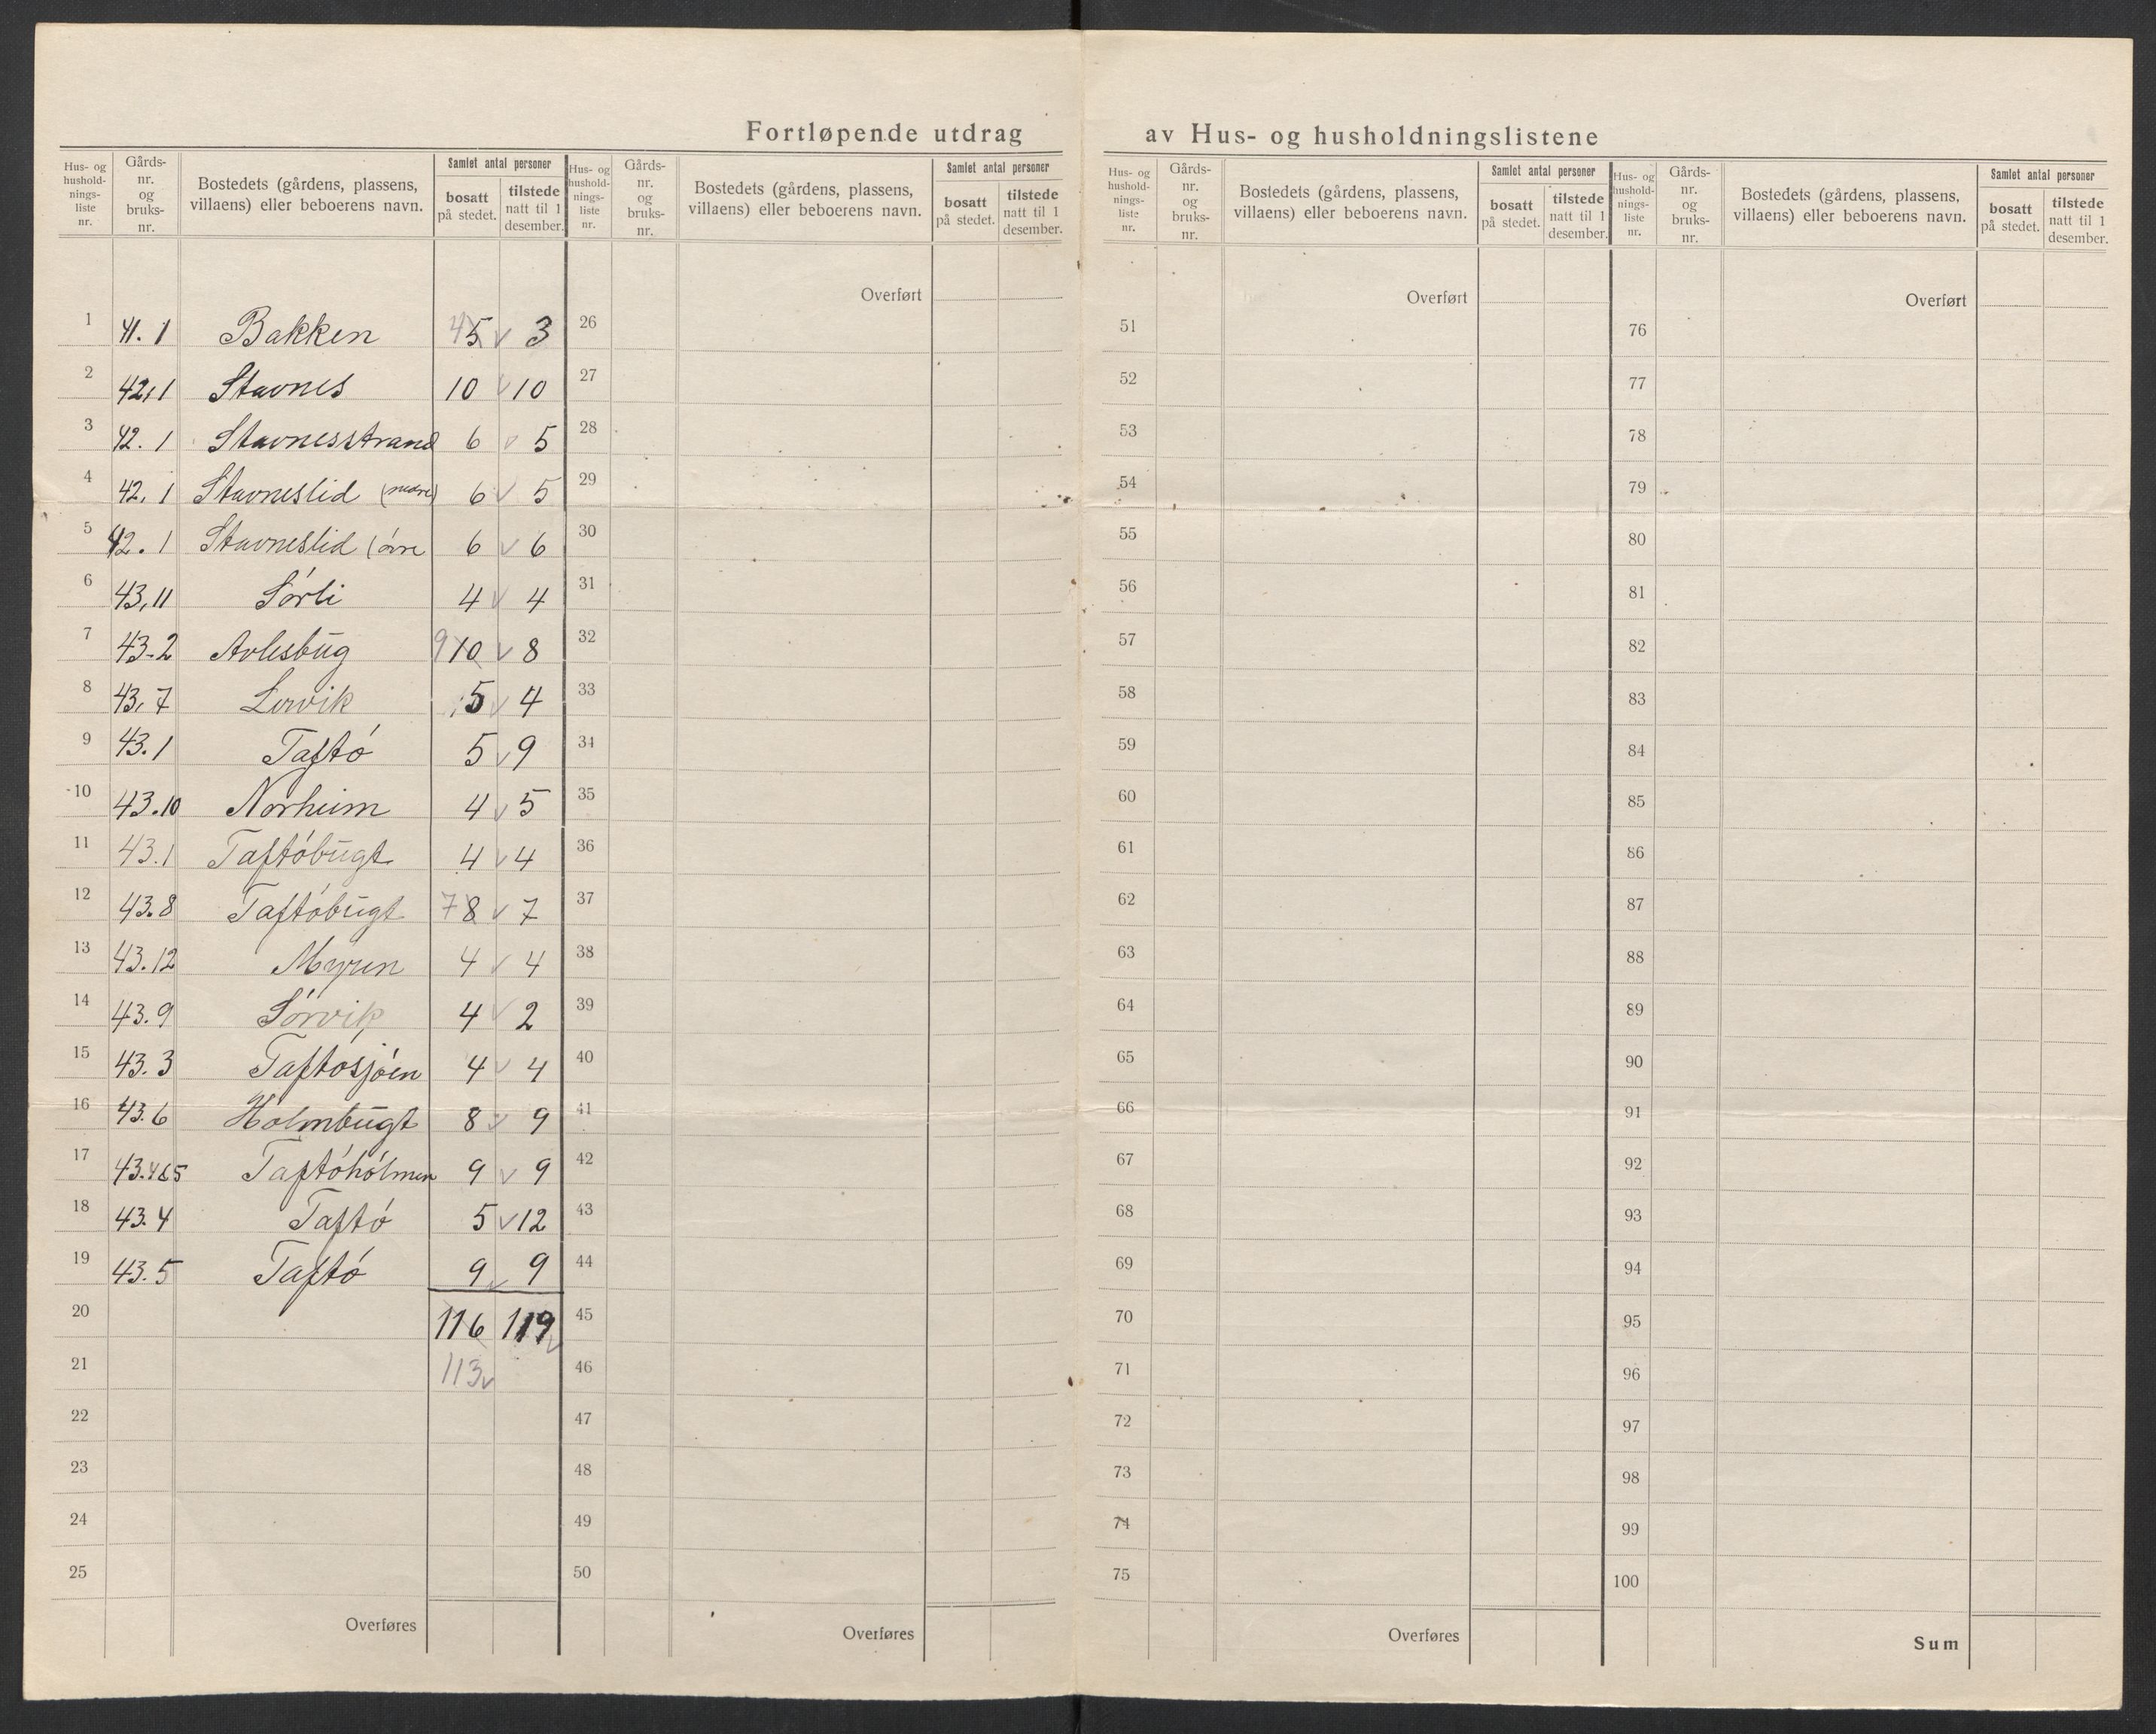 Fortløpende utdrag av Hus- og husholdningslistene
Hus- og husholdningsliste nr. Gårds-nr. og bruks-nr. Bostedets (gårdens, plassens, villaens) eller beboerens navn. Samlet antal personer bosatt på stedet. tilstede natt til 1 desember.
Hus- og husholdningsliste nr. Gårds-nr. og bruks-nr. Bostedets (gårdens, plassens, villaens) eller beboerens navn. Samlet antal personer bosatt på stedet. tilstede natt til 1 desember.
Hus- og husholdningsliste nr. Gårds-nr. og bruks-nr. Bostedets (gårdens, plassens, villaens) eller beboerens navn. Samlet antal personer bosatt på stedet. tilstede natt til 1 desember.
Hus- og husholdningsliste nr. Gårds-nr. og bruks-nr. Bostedets (gårdens, plassens, villaens) eller beboerens navn. Samlet antal personer bosatt på stedet. tilstede natt til 1 desember.
1 41.1 Bakken 4 5 v 3
2 42,1 Stavnes 10 v 10
3 42.1 Stavnesstrand 6 v 5
4 42,1 Stavneslid (nedre) 6 v 5
5 42.1 Stavneslid (övre 6 v 6
6 43,11 Sórli 4 v 4
7 43-2 Avlesbug 9 10 v 8
8 43,7 Lervik 5 v 4
9 43.1 Taftó 5 v 9
10 43.10 Norheim 4 v 5
11 43.1 Taftóbugt 4 v 4
12 43.8 Taftóbugt 7 8 v 7
13 43.12 Myren 4 v 4
14 43.9 Sórvik 4 v 2
15 43.3 Taftosjóen 4 v 4
16 43.6 Holmbugt 8 v 9
17 43.4&5 Taftóhólmen 9 v 9
18 43.4 Taftó 5 v 12
19 43.5 Taftó 9 v 9
20 116 119 v
21 113 v
22
23
24
25
Overføres
Overført
26
27
28
29
30
31
32
33
34
35
36
37
38
39
40
41
42
43
44
45
46
47
48
49
50
Overføres
Overført
51
52
53
54
55
56
57
58
59
60
61
62
63
64
65
66
67
68
69
70
71
72
73
74
75
Overføres
Overført
76
77
78
79
80
81
82
83
84
85
86
87
88
89
90
91
92
93
94
95
96
97
98
99
100
Sum